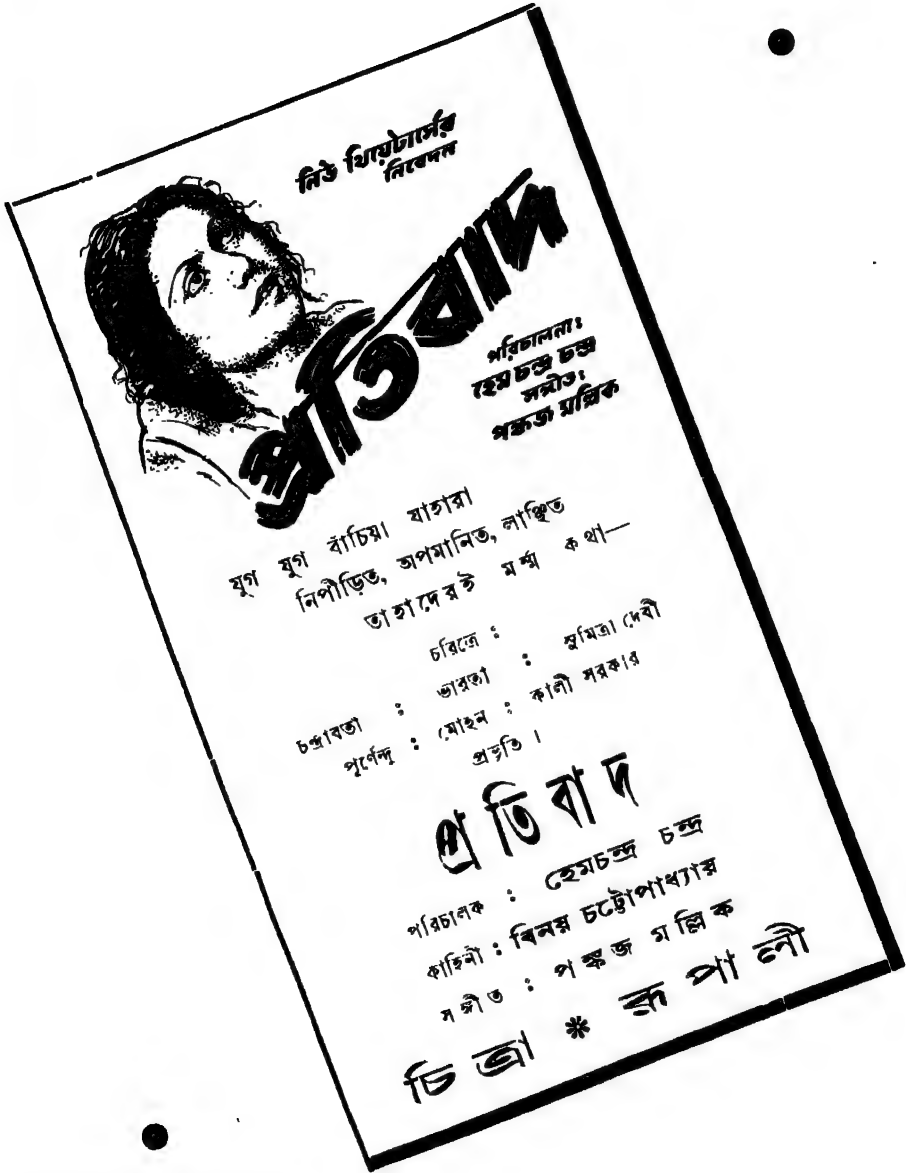 নিউ থিয়েটার্সের
নিবেদন
প্রতিবাদ
পরিচালনাঃ
হেমচন্দ্র চন্দ্র
সঙ্গীতঃ
পঙ্কজ মল্লিক
যুগ যুগ বাঁচিয়া যাহারা
নিপীড়িত, অপমানিত, লাঞ্ছিত
তাহাদেরই মর্ম্ম কথা—
চরিত্রে :
চন্দ্রাবতী : ভারতী : সুমিত্রা দেবী
পূর্ণেন্দু : মোহন : কালী সরকার
প্রভৃতি ।
প্রতিবাদ
পরিচালক : হেমচন্দ্র চন্দ্র
কাহিনী : বিনয় চট্টোপাধ্যায়
সঙ্গীত : পঙ্কজ মল্লিক
চিত্রা * রূপালী